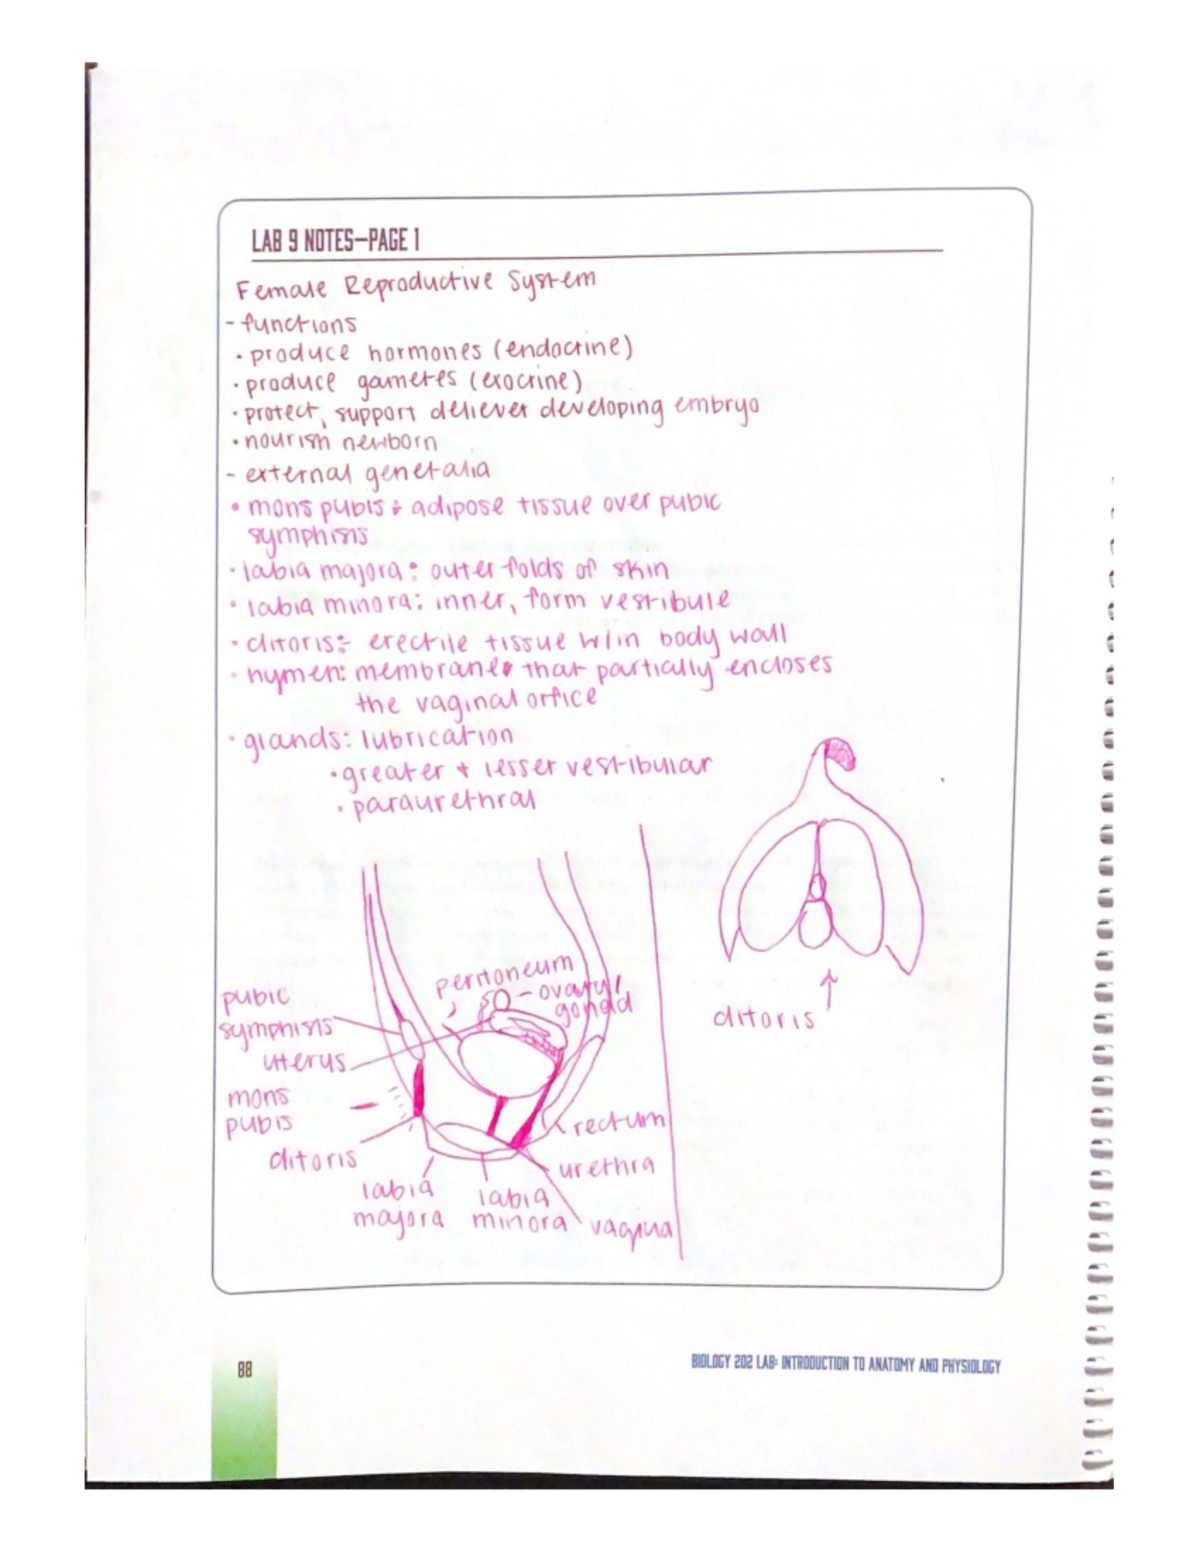 LAB 9 NOTES—PAGE 1
Female Reproductive System
- functions
• produce hormones (endocrine)
• produce gametes (exocrine)
• protect, support deliever developing embryo
• nourish newborn
- external genetalia
• mons pubis: adipose tissue over pubic
symphisis
• labia majora: outer folds of skin
• labia minora: inner, form vestibule
• clitoris: erectile tissue w/in body wall
• hymen: membrane that partially encloses
the vaginal orfice
• glands: lubrication
• greater + lesser vestibular
• paraurethral
peritoneum
ovary/
gonad
pubic
symphisis
utterus
mons
pubis
clitoris
labia
majora
labia
minora
vagina
urethra
rectum
clitoris
88
BIOLOGY 202 LAB: INTRODUCTION TO ANATOMY AND PHYSIOLOGY